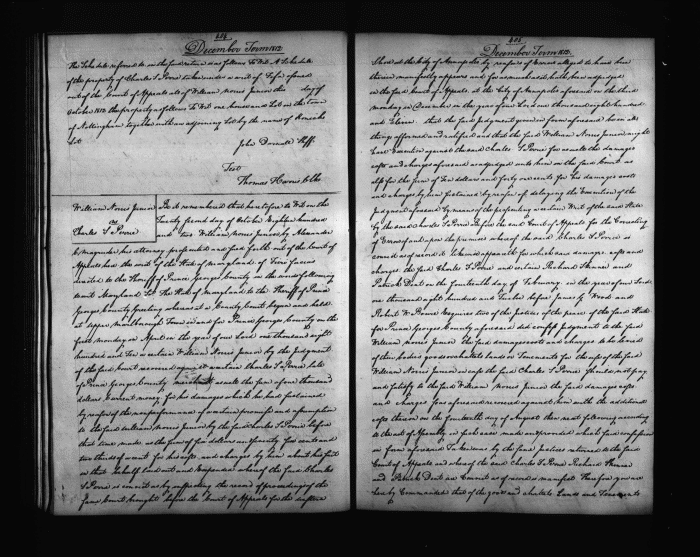 404
December Term 1812
The Schedule referred to in the said return is as follows To Wit A Schedule
of the property of Charles S Peirce taken under a writ of Fifa issued
out of the Court of Appeals ats of William Norris Junior this day of
October 1812 the property as follows To Wit one house and Lot in the town
of Nottingham together with an adjoining Lot by the name of
Lot
John Shff
Test
Thomas Harris Clk
William Norris Junior
vs
Charles S Peirce
Be it remembered that heretofore to Wit on the
Twenty second day of October Eighteen hundred
and two William Norris Junior by Alexander
C Magruder his attorney prosecuted and sued forth out of the Court of
Appeals here the writ of the State of Maryland of Scire facias
directed to the Sheriff of Prince Georges County in the words following
to wit Maryland Sct The State of Maryland to the Sheriff of Prince
Georges County Greeting whereas at a County Court begun and held
at Upper Marlborough Town in and for Prince Georges County on the
first monday in April in the year of our Lord one thousand eight
hundred and Ten a certain William Norris Junior by the Judgment
of the said Court recovered against a certain Charles S Peirce late
of Prince Georges County merchant as well the sum of one thousand
dollars Current money for his damages which he had sustained
by reason of the nonperformance of a certain promise and assumption
to the said William Norris Junior by the said Charles S Peirce before
that time made as the sum of six dollars and seventy five cents and
two thirds of a cent for his costs and charges by him about his suit
in that behalf laid out and expended whereof the said Charles
S Peirce is convict as by inspecting the record of proceedings of the
same Court brought before the Court of Appeals for the Western
405
December Term 1812
Shore at the City of Annapolis by reason of Errors alleged to have been
therein manifestly appears and forasmuch as it hath been adjudged
in the said Court of Appeals at the City of Annapolis aforesaid on the third
monday in December in the year of our Lord one thousand eight hundred
and Eleven that the said Judgment given in form aforesaid be in all
things affirmed and ratified and that the said William Norris Junior might
have Execution against the said Charles S Peirce for as well the damages
costs and charges aforesaid as adjudged unto him in the said Court as
also for the sum of Ten dollars and forty one cents for his damages costs
and charges by him sustained by reason of delaying the Execution of the
Judgment aforesaid by means of the prosecuting a certain Writ of the said State
by the said Charles S Peirce in the said Court of Appeals for the Correcting
of Errors in and upon the premises whereof the said Charles S Peirce is
convict as of record it likewise appears to us for which said damages costs and
charges the said Charles S Peirce and certain Richard and
Patrick Dent on the fourteenth day of February in the year of our Lord
one thousand eight hundred and Twelve before James G Wood and
Robert W Bowie Esquires two of the Justices of the peace of the said State
for Prince Georges County aforesaid did confess Judgments to the said
William Norris Junior the said damages costs and charges to be levied
of their bodies goods or chattels lands or Tenements for the use of the said
William Norris Junior in case the said Charles S Peirce should not pay
and satisfy to the said William Norris Junior the said damages costs
and charges so as aforesaid recovered against him with the additional
costs thereon on the fourteenth day of August then next following according
to the act of Assembly in such case made and provided which said confession
in form aforesaid taken was by the said Justices returned to the said
Court of Appeals and whereof the said Charles S Peirce Richard
and Patrick Dent are Convict as of record is manifest Therefore you are
hereby Commanded that of the goods and chattels Lands and Tenements